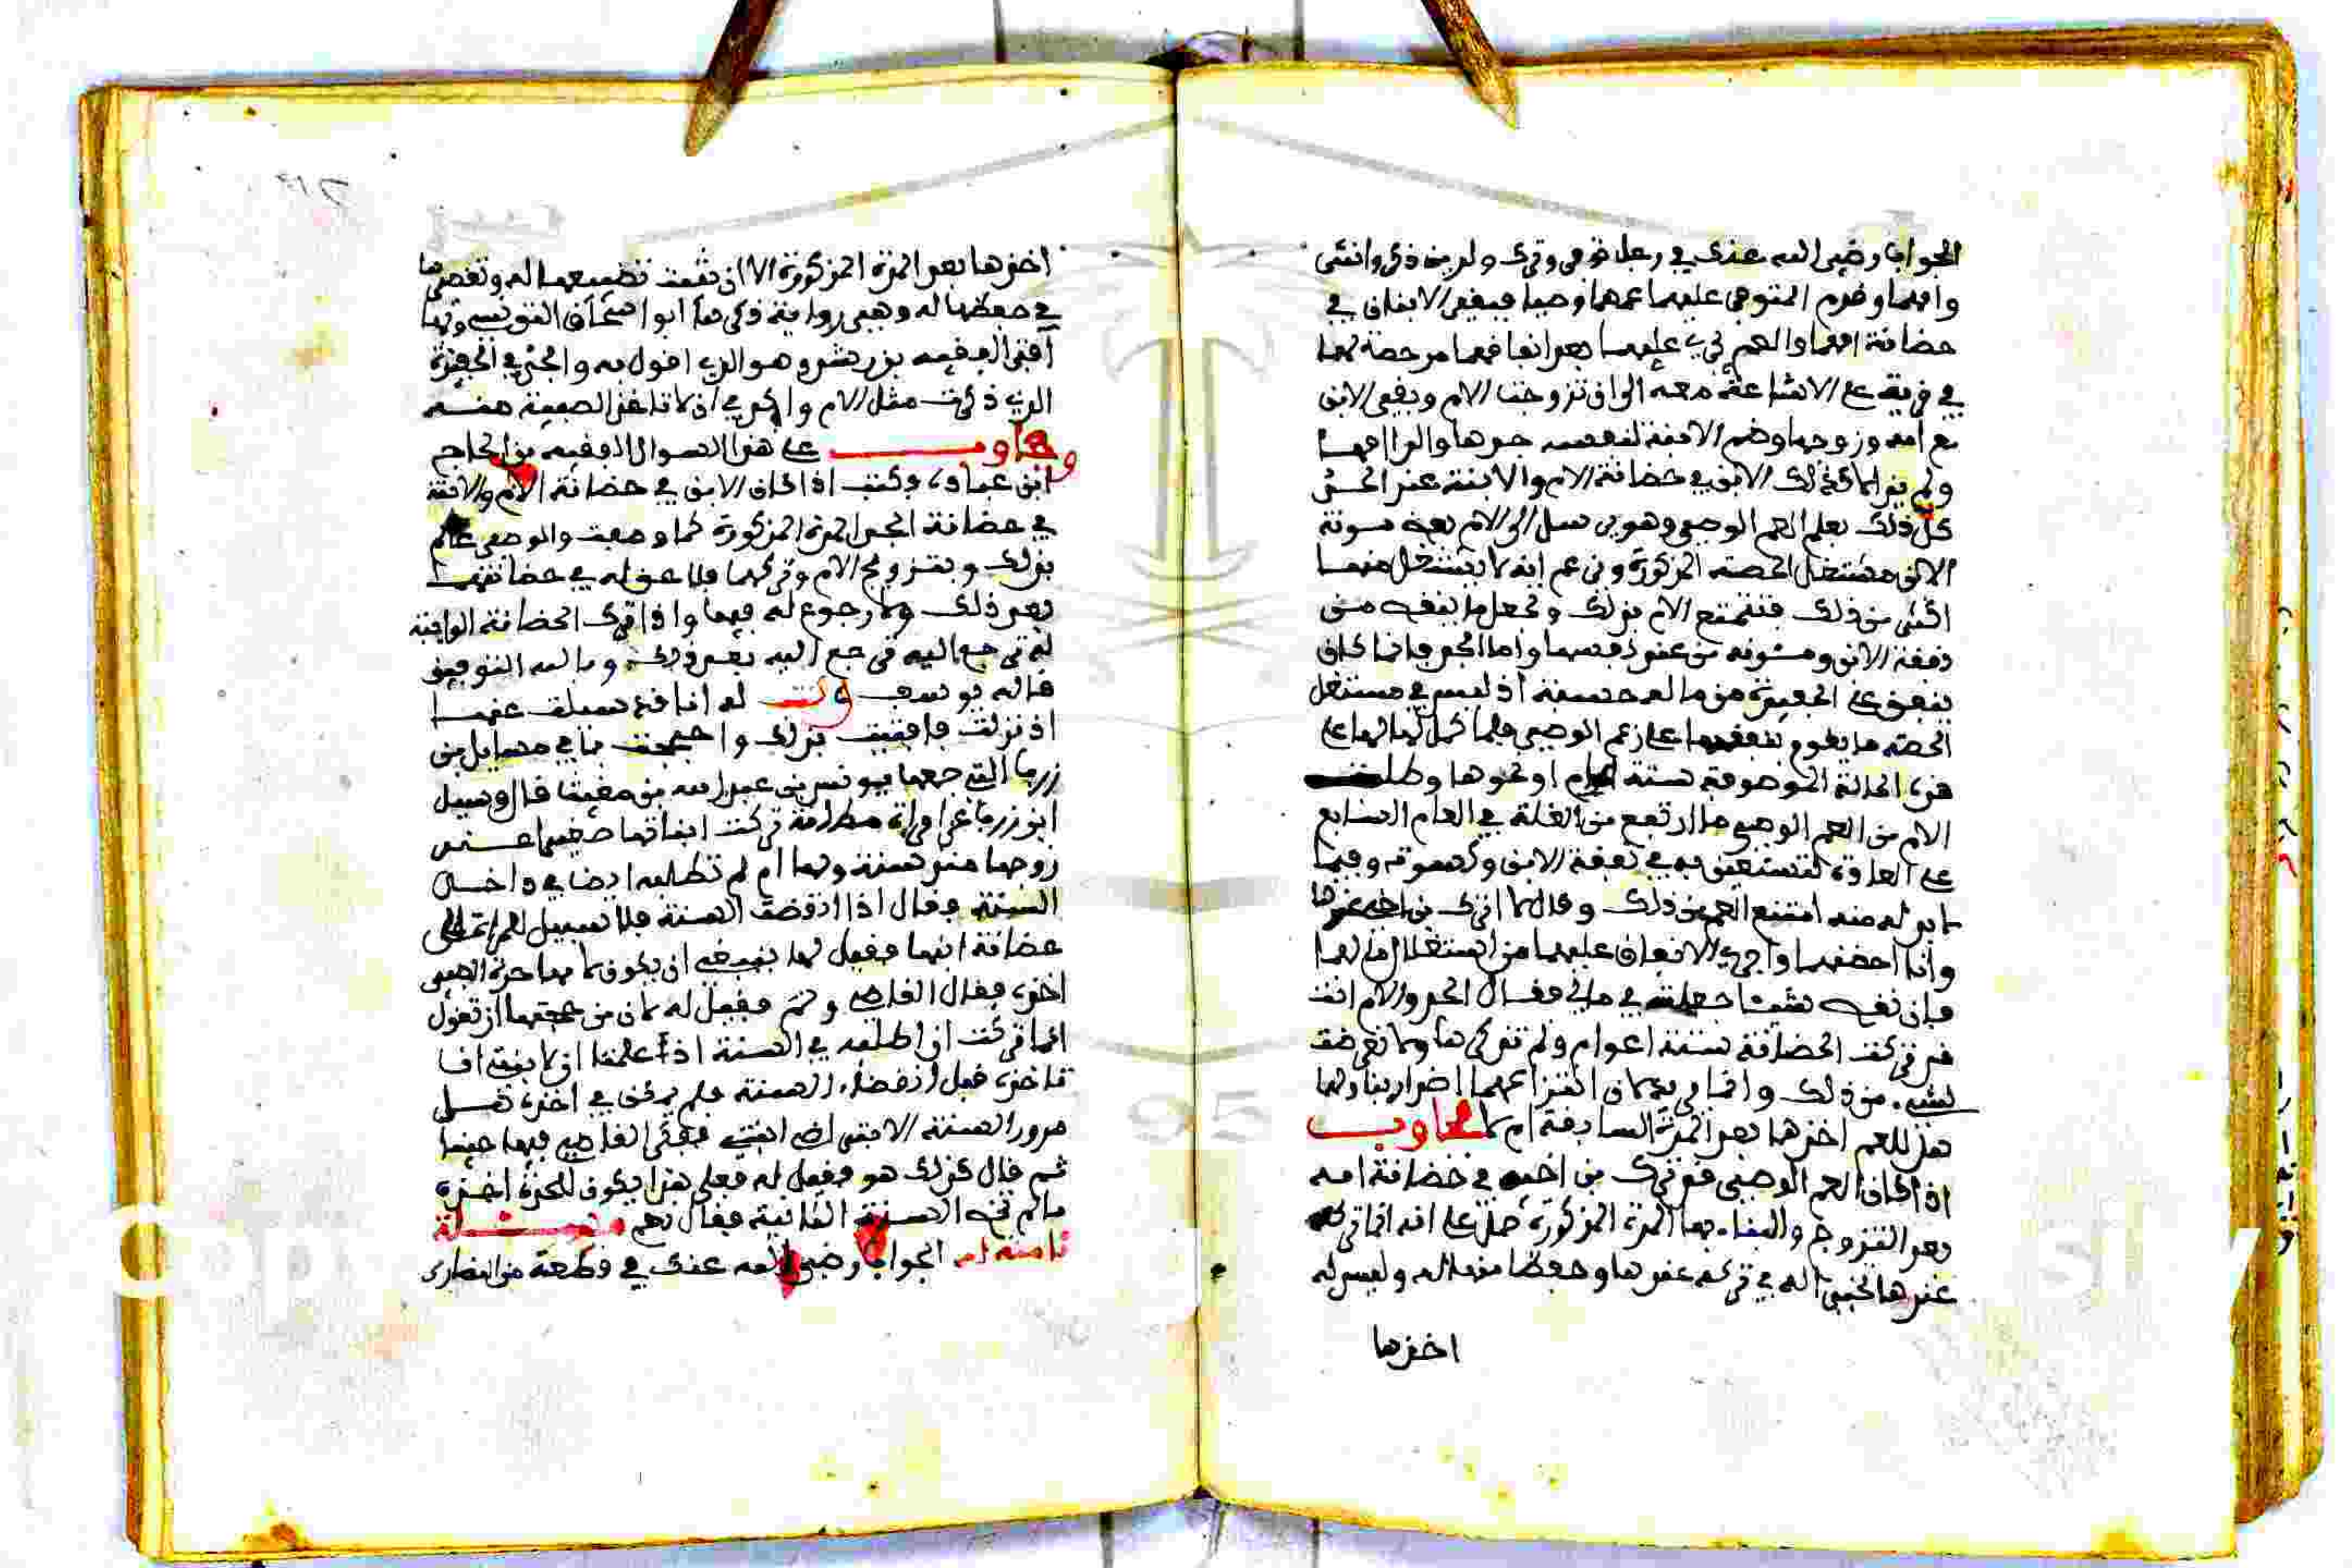 الجواب رضي الله عنك في رجل توفي وترك ولدين ذكر وانثى
وامهما وقدم المتوفى عليهما عمهما وصيا فبقى الابنان في
حضانة امهما والعم يجري عليهما بعد انفاقهما من حصة لهما
في قرية على الاشاعة معه الى ان تزوجت الام وبقي الابن
مع امه وزوجها وضم الابنة لنفسه جدها والد امهما
ولم يزل كذلك الابن في حضانة الام والابنة عند الجد
كل ذلك بعلم العم الوصي وهو يرسل الى الام بعض مونة
الابن من مستغل الحصة المذكورة وزعم انه لا يستغل منها
اكثر من ذلك فتقنع الام بذلك وتحمل ما بقي من
نفقة الابن ومئونه من عند نفسها واما الجد فانما كان
ينفق على الحفيدة من ماله حسبة اذ ليس في مستغل
الحصة ما يقوم بنفقتهما على زعم الوصي فلما كمل لهما على
هذه الحالة الموصوفة ستة اعوام او نحوها وطلبت
الام من العم الوصي ما ارتفع من الغلة في العام السابع
على العادة لتستعين به في نفقة الابن وكسوته وفيما
لا بد له منه امتنع العم من ذلك وقال لا اترك بني اخي عندها
وانا احضنهما واجري الانفاق عليهما من استغلال مالهما
فان نقص شيئا جعلته في مالي فقال الجد والام انت
قد تركت الحضانة ستة اعوام ولم تذكرها ولا تعرضت
لشيء من ذلك وانما تريد الان انتزاعهما اضرارا بنا وبهما
هل للعم اخذها بعد المدة السابقة ام لا فجاوب
اذا كان العم الوصي قد ترك بن اخيه في حضانة امه
بعد التزوج والبناء بها المدة المذكورة حمل على انه انما تركه
عندها لحقها له في تركه عندها وحفظها منها له وليس له
اخذها
اخذها بعد المدة المذكورة الا ان يثبت تضييعها له وتقصيرها
في حفظها له وهي رواية ذكرها ابو اسحاق التونسي وبها
افتى الفقيه بن رشد وهو الذي اقول به والجد في الحفيدة
الذي ذكرت مثل الام واحرى اذ لا تاخذ الصبية منه
وجاوب على هذا السوال الفقيه بن الحاج
ابن عباد وكتب اذا كان الابن في حضانة الام والابنة
في حضانة الجد المدة المذكورة كما وصفت والوصي عالم
بذلك وبتزويج الام وتركهما فلا حق له في حضانتهما
بعد ذلك ولا رجوع له فيها واذا ترك الحضانة الواجبة
له ترجع اليه فرجع اليه بعد ذلك وبالله التوفيق
قاله يوسف قلت له انا قد سيلت عنها
اذ نزلت فافتيت بذلك واحتججت بما في مسايل بن
زرب التي جمعها يونس بن عبد الله بن مغيث قال وسيل
ابن زرب عن امراة مطلقة تركت ابناتها صغيرا عند
زوجها منذ سنة ولها ام لم تطلبه ايضا في داخل
السنة فقال اذا انقضت السنة فلا سبيل للمراة الى
حضانة ابنها فقيل لها ينبغي ان يكون لامها جدة الصبي
اخذه فقال القاضي ولم فقيل له لان من حجتها ان تقول
انما تركت ان اطلبه في السنة اذ علمنا ان لابنتي ان
تاخذه قبل انقضاء السنة فلم يمكن في اخذه قبل
مرور السنة الا بتى ابنتي ففكر القاضي فيها حينا
ثم قال كذلك هو فقيل له فعلى هذا يكون للجدة اخذه
ما لم تمض السنة الثانية فقال نعم مسئلة
ثامنة ام الجواب رضي الله عنك في قطعة من النصارى